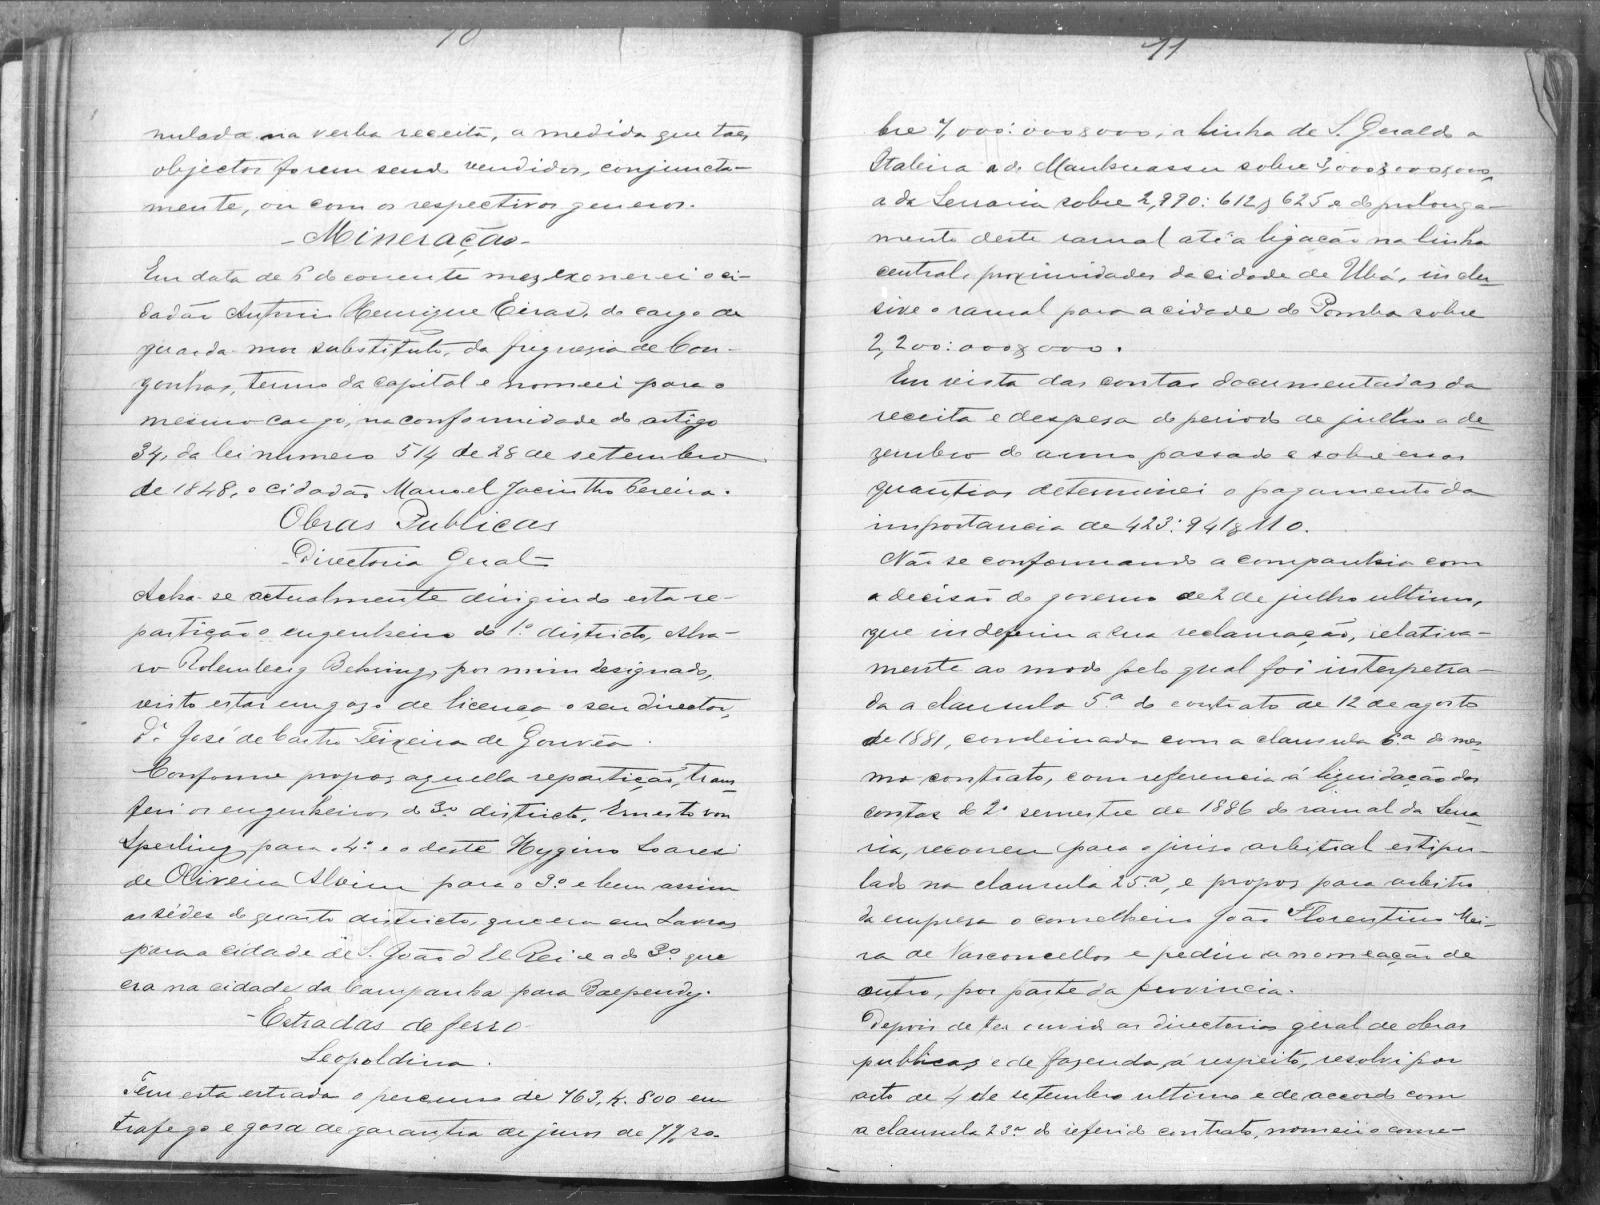 10
nulada na verba receita, a medida que taes
objectos forem sendo vendidos, conjuncta-
mente, ou com os respectivos generos.
- Mineração -
Em data de 6 do corrente mez exonerei o ci-
dadão Antonio Henrique Eiras, do cargo de
guarda-mor substituto, da freguesia de Con-
gonhas, termo da capital e nomeei para o
mesmo cargo, na conformidade do artigo
34, da lei numero 514 de 28 de setembro
de 1848, o cidadão Manoel Jacintho Pereira.
Obras Publicas
- Directoria Geral -
Acha-se actualmente dirigindo esta re-
partição o engenheiro do 1º districto, Alva-
ro Rolemberg Behring, por mim designado,
visto estar em gozo de licença o seu director,
Dr. José de Castro Teixeira de Gouvêa.
Conforme propoz aquella repartição, trans-
feri os engenheiros do 3º districto, Ernesto von
Sperling para o 4º e o deste Hygino Soares
de Oliveira Alvim para o 3º e bem assim
as sédes do quarto districto, que era em Lavras
para a cidade de S. João d'El Rei e a do 3º que
era na cidade da Campanha para Baependy.
- Estradas de ferro
Leopoldina.
Tem esta estrada o percurso de 763, k. 800 em
trafego e gosa de garantia de juros de 7% so-
11
bre 7,000:000$000, a linha de S. Geraldo a
Itabira a do Manhuassu sobre 3,000$000$000,
a da Serraria sobre 2,990:612$625 e do prolonga-
mento deste ramal até a ligação na linha
central, proximidades da cidade de Ubá, inclu-
sive o ramal para a cidade do Pomba sobre
2,200:000$000.
Em vista das contas documentadas da
receita e despesa do periodo de julho a de-
zembro do anno passado e sobre essas
quantias determinei o pagamento da
importancia de 423:941$110.
Não se conformando a companhia com
a decisão do governo de 2 de julho ultimo,
que indeferiu a sua reclamação, relativa-
mente ao modo pelo qual foi interpetra-
da a clausula 5ª do contrato de 12 de agosto
de 1881, combinada com a clausula 6.ª do mes-
mo contrato, com referencia á liquidação das
contas do 2º semestre de 1886 do ramal da Serra-
ria, recorreu para o juiso arbitral estipu-
lado na clausula 25ª, e propoz para arbitro
da empresa o conselheiro João Florentino Mei-
ra de Vasconcellos e pediu a nomeação de
outro, por parte da provincia.
Depois de ter ouvido as directorias geral de obras
publicas e de fazenda, á respeito, resolvi por
acto de 4 de setembro ultimo e de accordo com
a clausula 23ª do referido contrato, nomeei o conse-